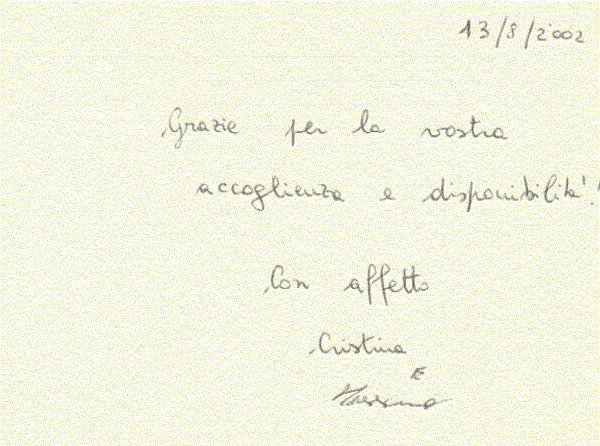 13/8/2002
Grazie per la vostra
accoglienza e disponibilità!
Con affetto
Cristina
E
Massimo